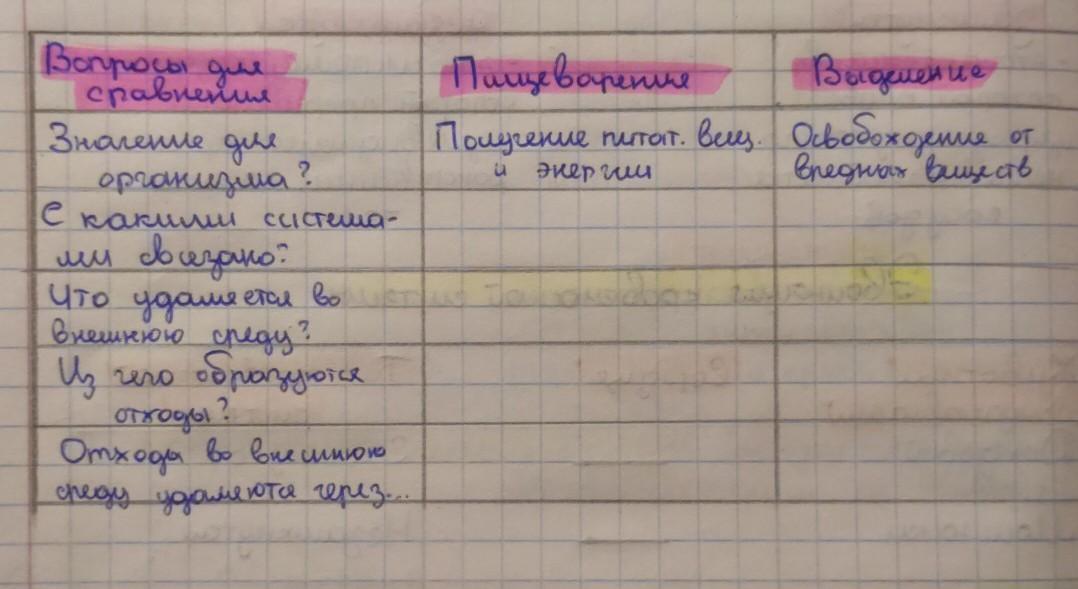 Вопросы для
сравнения
Пищеварение
Выделение
Значение для
организма?
Получение питат. вещ.
и энергии
Освобождение от
вредных веществ
С какими система-
ми связано?
Что удаляется во
внешнюю среду?
Из чего образуются
отходы?
Отходы во внешнюю
среду удаляются через...